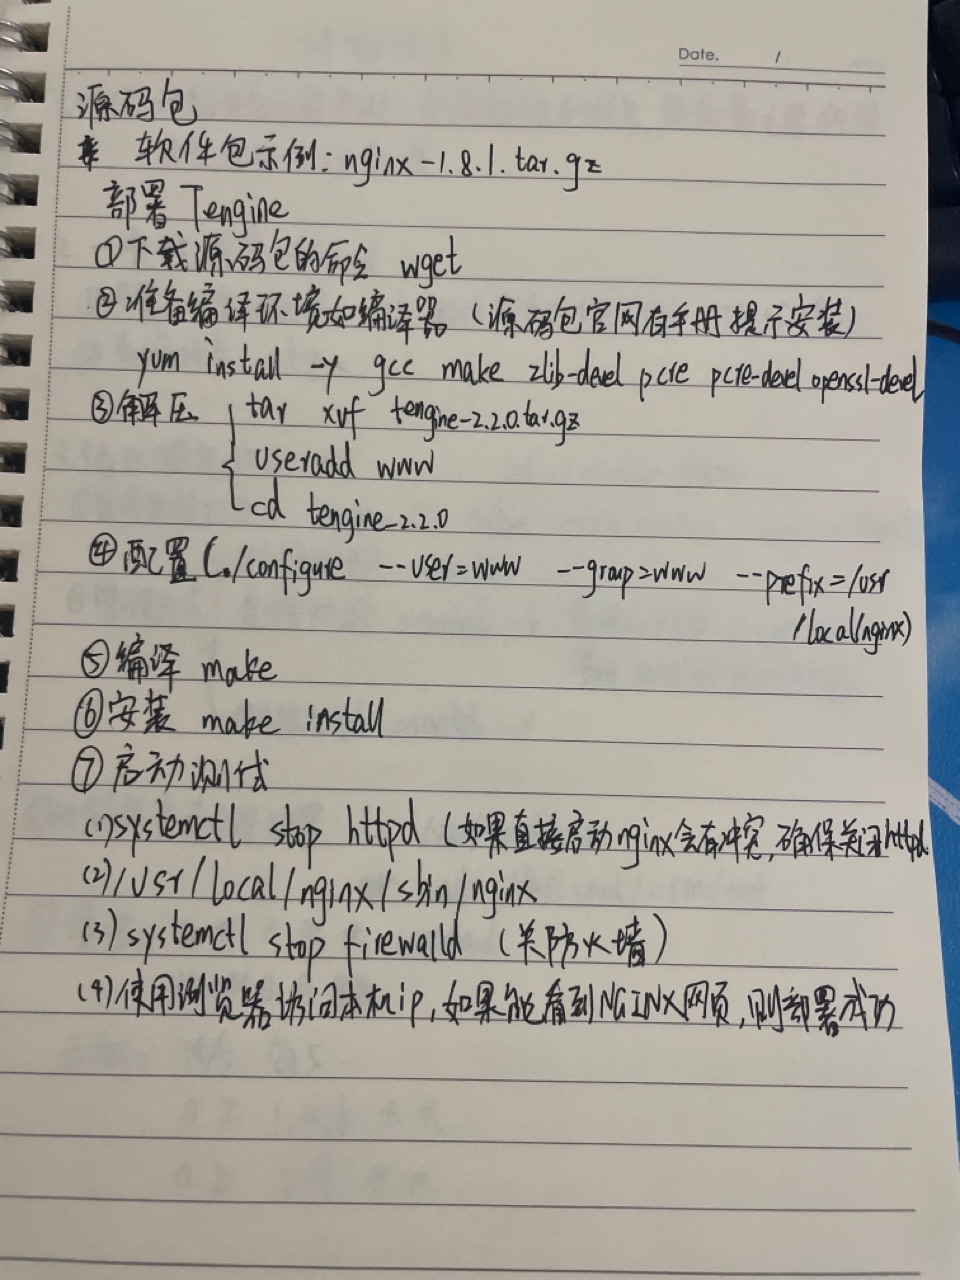 Date. /
源码包
* 软件包示例: nginx-1.8.1.tar.gz
部署 Tengine
①下载源码包的命令 wget
②准备编译环境如编译器 (源码包官网有手册提示安装)
yum install -y gcc make zlib-devel pcre pcre-devel openssl-devel
③解压 tar xvf tengine-2.2.0.tar.gz
useradd www
cd tengine-2.2.0
④配置 (./configure --user=www --group=www --prefix=/usr
/local/nginx)
⑤编译 make
⑥安装 make install
⑦启动测试
(1)systemctl stop httpd (如果直接启动nginx会有冲突,确保关闭httpd
(2)/usr/local/nginx/sbin/nginx
(3) systemctl stop firewalld (关防火墙)
(4)使用浏览器访问本机ip,如果能看到NGINX网页,则部署成功